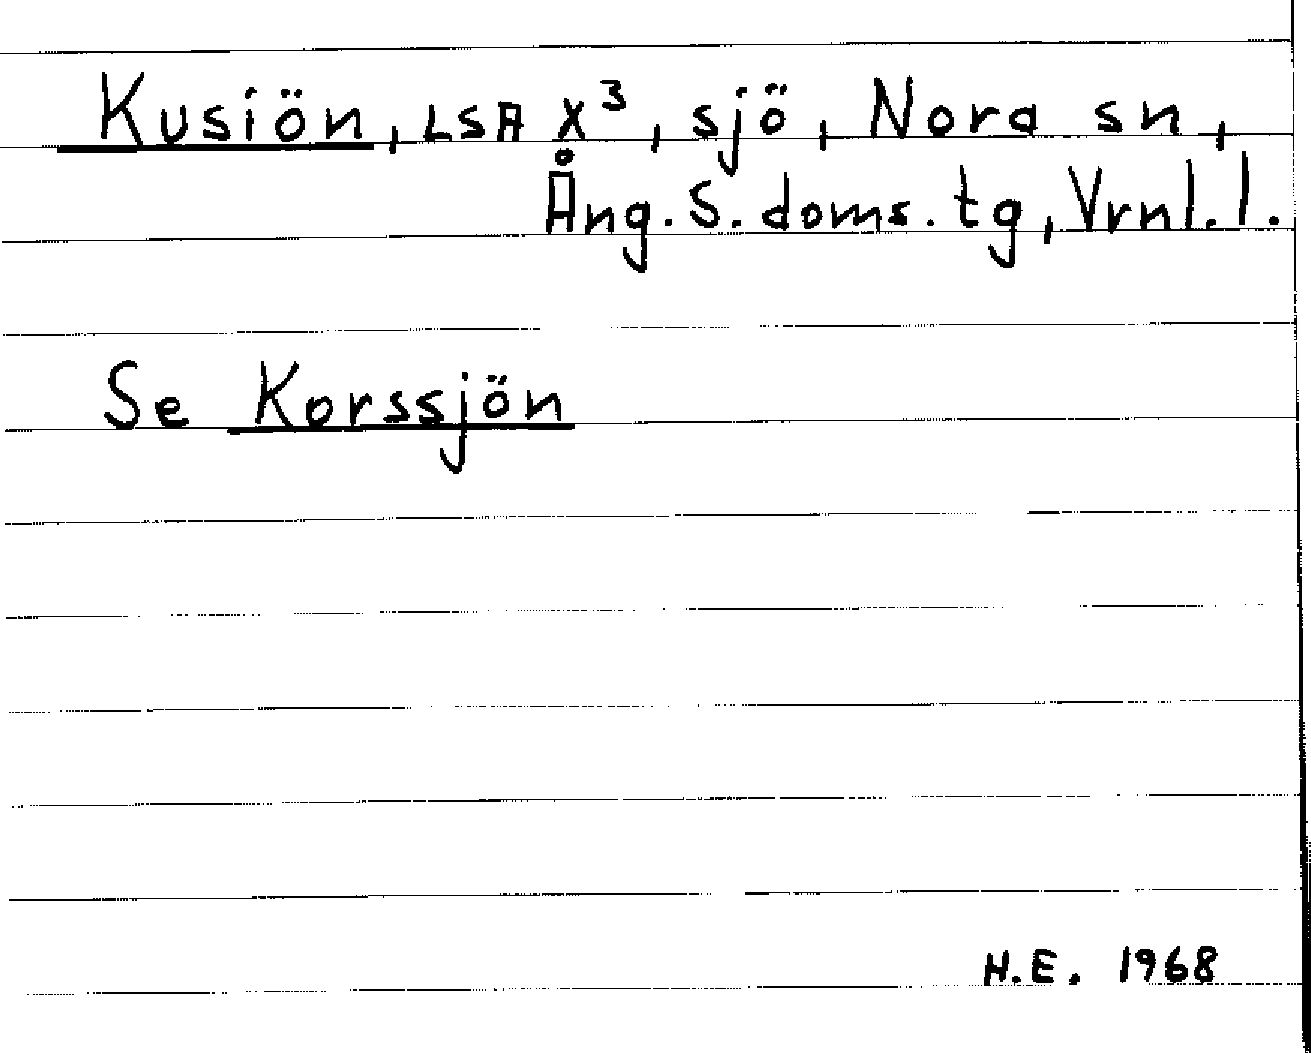 Kusiön, LSA X³, sjö, Nora sn,
Ång. S. doms. tg, Vrnl. l.
Se Korssjön
H.E. 1968